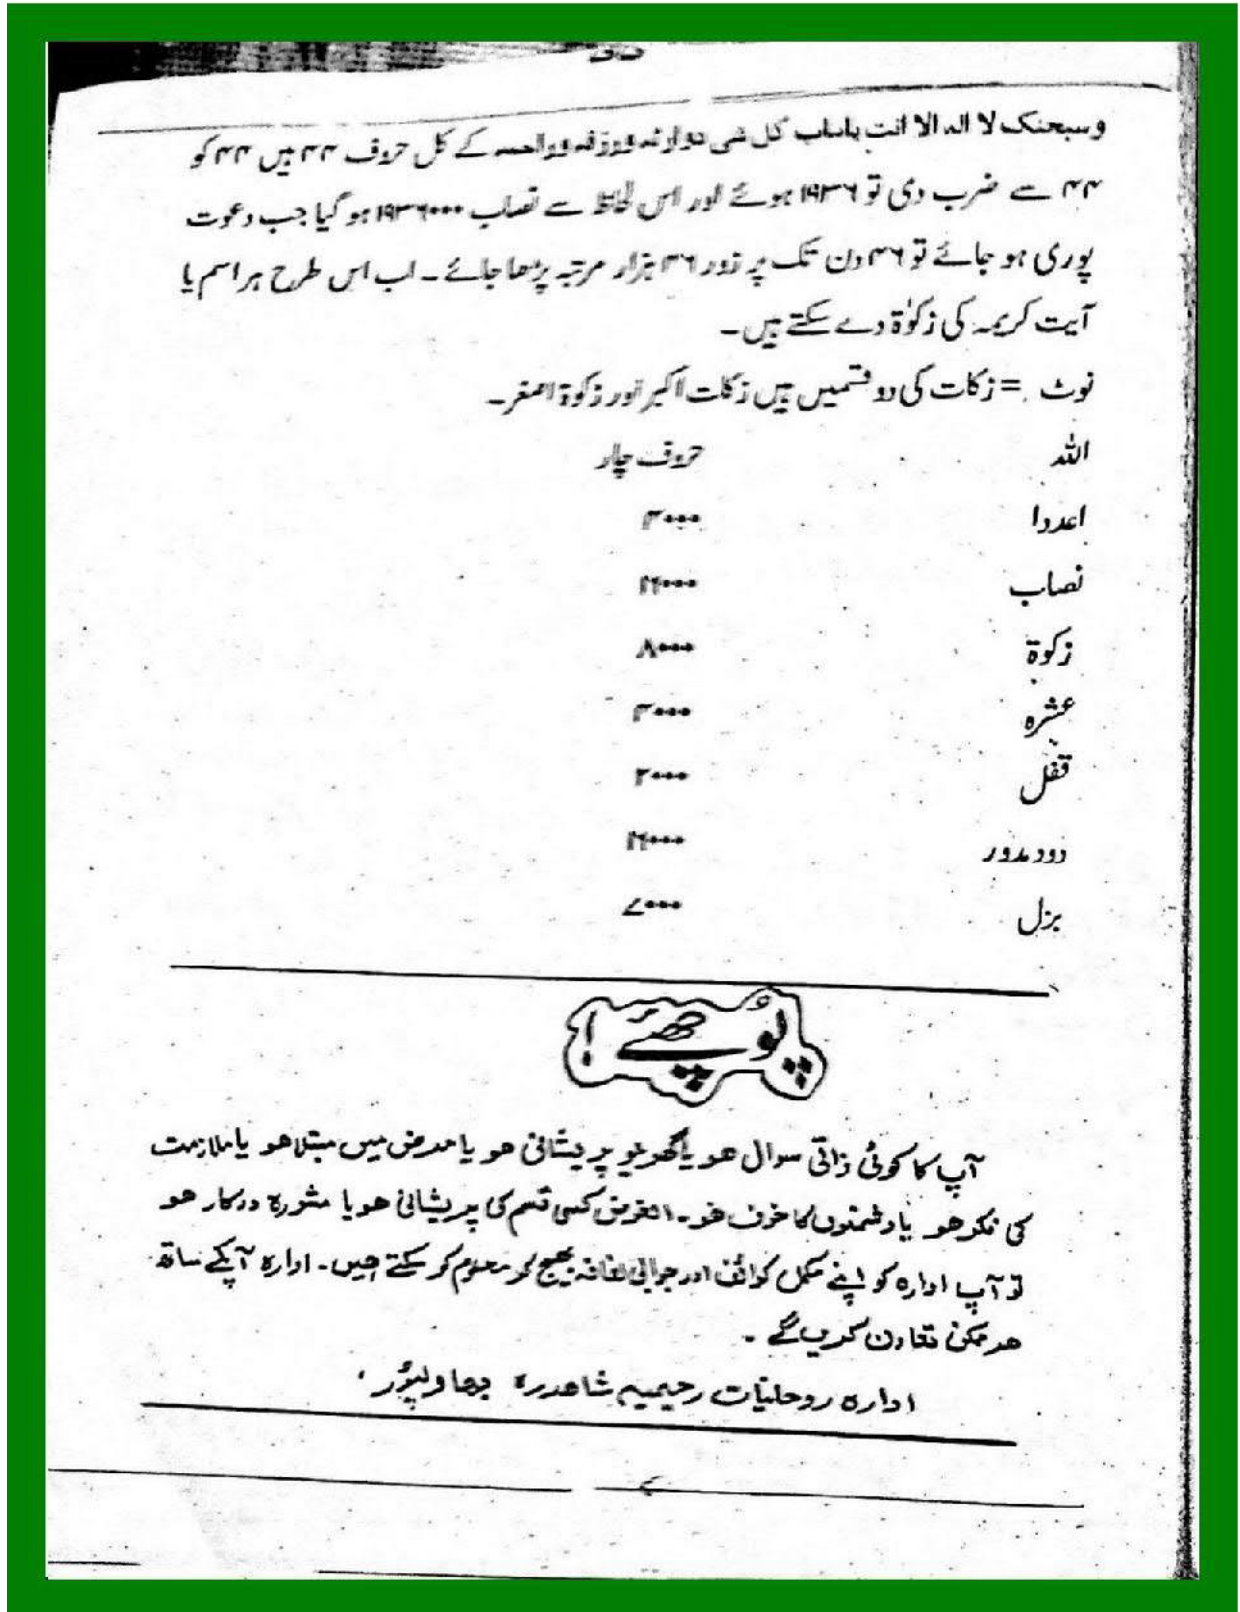 وسبحنک لا الہ الا انت یارب کل شی ووارثہ ورازقہ وراحمہ کے کل حروف ۴۴ ہیں ۴۴ کو
۴۴ سے ضرب دی تو ۱۹۳۶ ہوئے اور اس لحاظ سے نصاب ۱۹۳۶۰۰۰ ہو گیا جب دعوت
پوری ہو جائے تو ۳۶ دن تک ہر روز ۳۶ ہزار مرتبہ پڑھا جائے ۔ اب اس طرح ہر اسم یا
آیت کریمہ کی زکوٰۃ دے سکتے ہیں ۔
نوٹ = زکات کی دو قسمیں ہیں زکات اکبر اور زکوۃ اصغر ۔
اللہ حروف چار
اعددا ۴۰۰۰
نصاب
زکوۃ ۸۰۰۰
عشرہ
قفل ۲۰۰۰
دود مدور
بزل ۷۰۰۰
پُوچھئے !
آپ کا کوئی ذاتی سوال ھو یا گھریلو پریشانی ھو یا مرض میں مبتلا ھو یا ملازمت
کی فکر ھو یا دشمنوں کا خوف ھو ۔ الغرض کسی قسم کی پریشانی ھو یا مشورہ درکار ھو
تو آپ ادارہ کو اپنے مکمل کوائف اور جوابی لفافہ بھیج کر معلوم کر سکتے ھیں ۔ ادارہ آپکے ساتھ
ھر ممکن تعاون کریں گے ۔
ادارہ روحانیات رحیمیہ شاھدرہ بھاولپُور